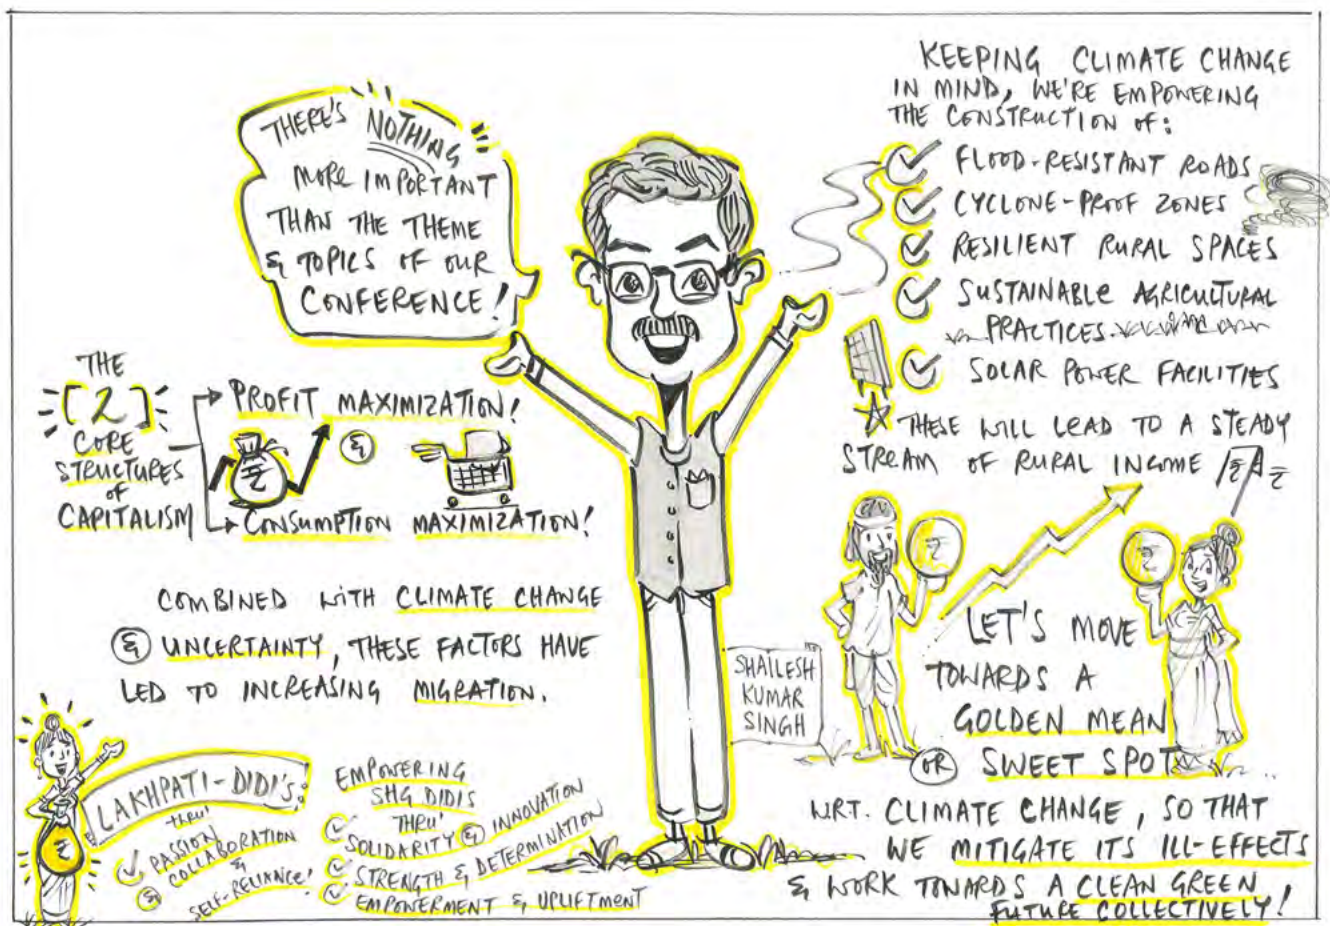 THERE'S NOTHING
MORE IMPORTANT
THAN THE THEME
& TOPICS OF OUR
CONFERENCE!
THE
[2]
CORE
STRUCTURES
OF
CAPITALISM
PROFIT MAXIMIZATION!
&
CONSUMPTION MAXIMIZATION!
COMBINED WITH CLIMATE CHANGE
& UNCERTAINTY, THESE FACTORS HAVE
LED TO INCREASING MIGRATION.
LAKHPATI-DIDI'S
THRU'
PASSION
& COLLABORATION
&
SELF-RELIANCE!
EMPOWERING
SHG DIDIS
THRU'
SOLIDARITY & INNOVATION
STRENGTH & DETERMINATION
EMPOWERMENT & UPLIFTMENT
SHAILESH
KUMAR
SINGH
KEEPING CLIMATE CHANGE
IN MIND, WE'RE EMPOWERING
THE CONSTRUCTION OF:
FLOOD-RESISTANT ROADS
CYCLONE-PROOF ZONES
RESILIENT RURAL SPACES
SUSTAINABLE AGRICULTURAL
PRACTICES
SOLAR POWER FACILITIES
THESE WILL LEAD TO A STEADY
STREAM OF RURAL INCOME
LET'S MOVE
TOWARDS A
GOLDEN MEAN
OR SWEET SPOT
WRT. CLIMATE CHANGE, SO THAT
WE MITIGATE ITS ILL-EFFECTS
& WORK TOWARDS A CLEAN GREEN
FUTURE COLLECTIVELY!